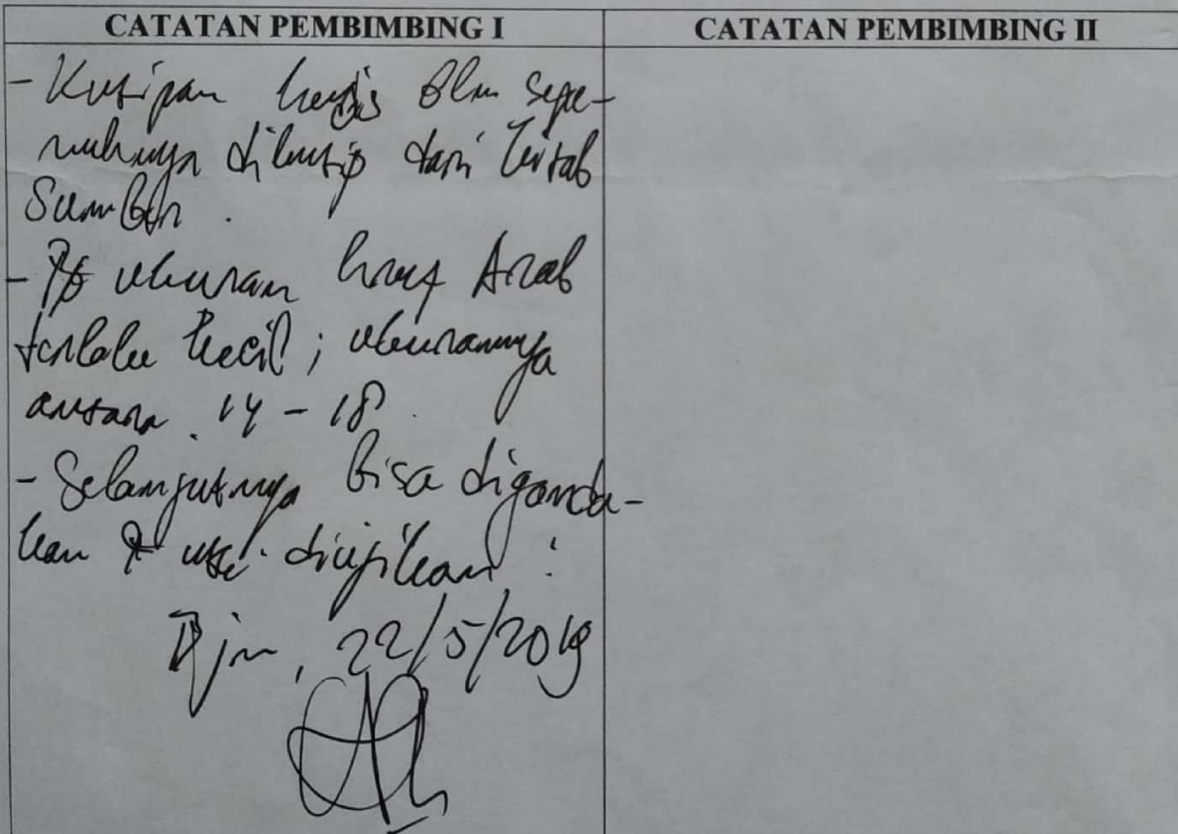 CATATAN PEMBIMBING I
CATATAN PEMBIMBING II
- Kutipan hadis blm sepe-
nuhnya dikutip dari kitab
Sumber.
- ukuran huruf Arab
terlalu kecil; ukurannya
antara 14 - 18
- Selanjutnya bisa diganda-
kan utk diujikan!
Bjm, 22/5/2019